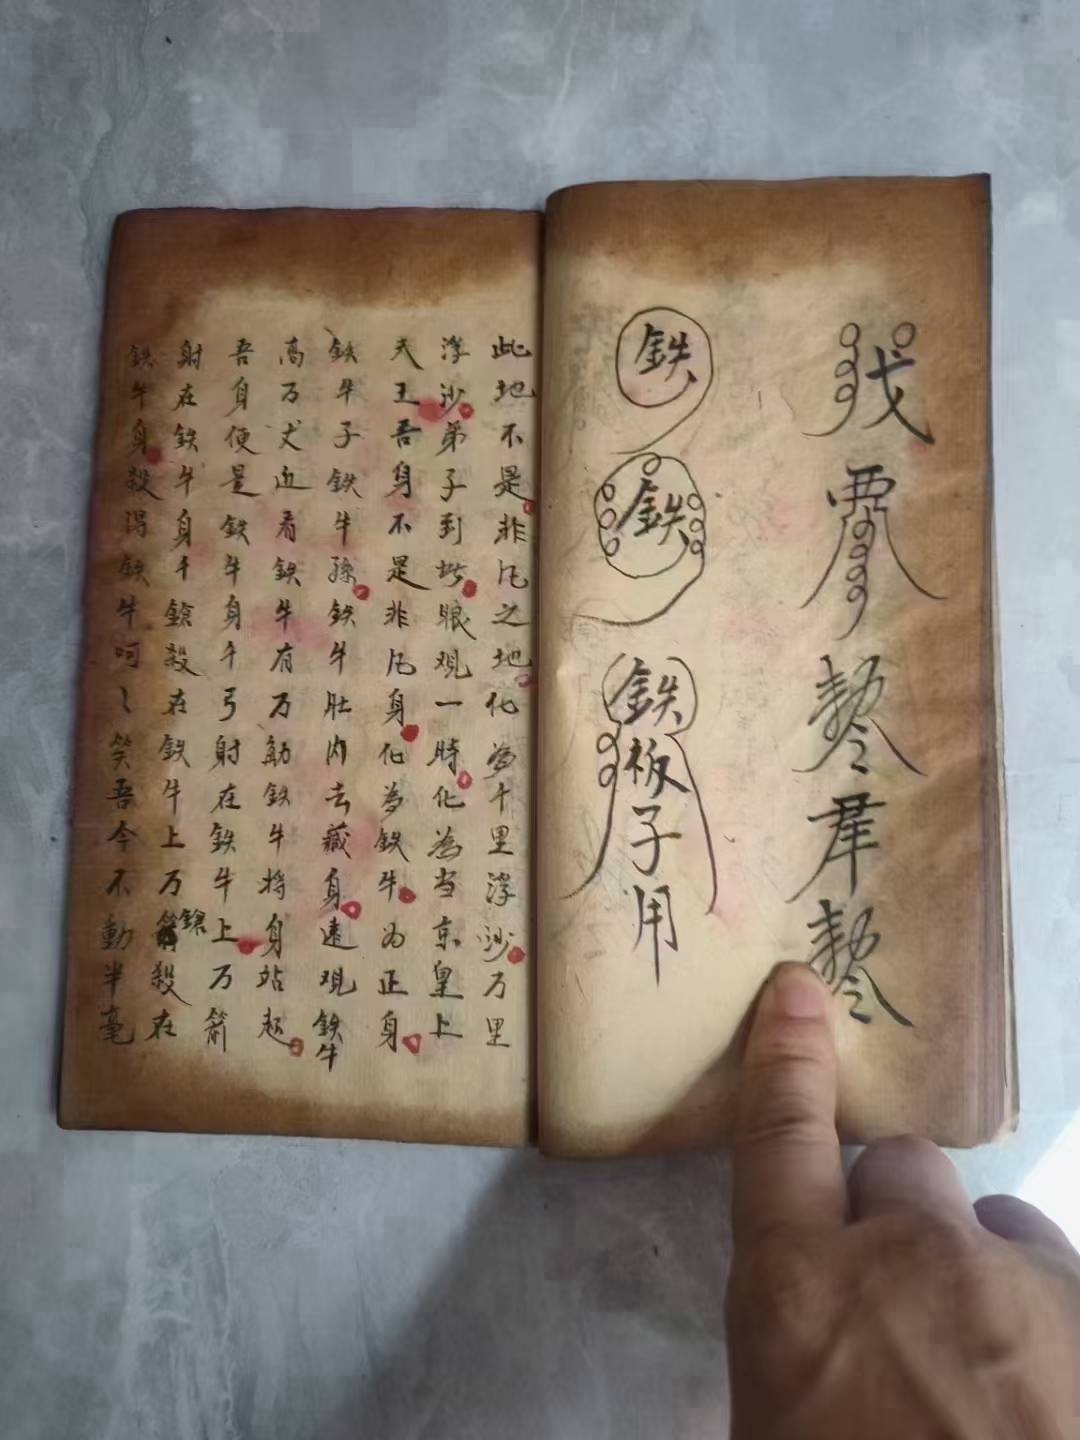 鉄
鉄
鉄板子用
此地不是非凡之地化為千里浮沙万里
浮沙弟子到此眼观一時化為当京皇上
天王吾身不是非凡身化為鉄牛为正身
鉄牛子鉄牛孫鉄牛肚内去藏身遠观鉄牛
高万丈近看鉄牛有万觔鉄牛将身站起
吾身便是鉄牛身千弓射在鉄牛上万箭
射在鉄牛身千鎗殺在鉄牛上万鎗殺在
鉄牛身殺得鉄牛呵〻笑吾今不動半毫